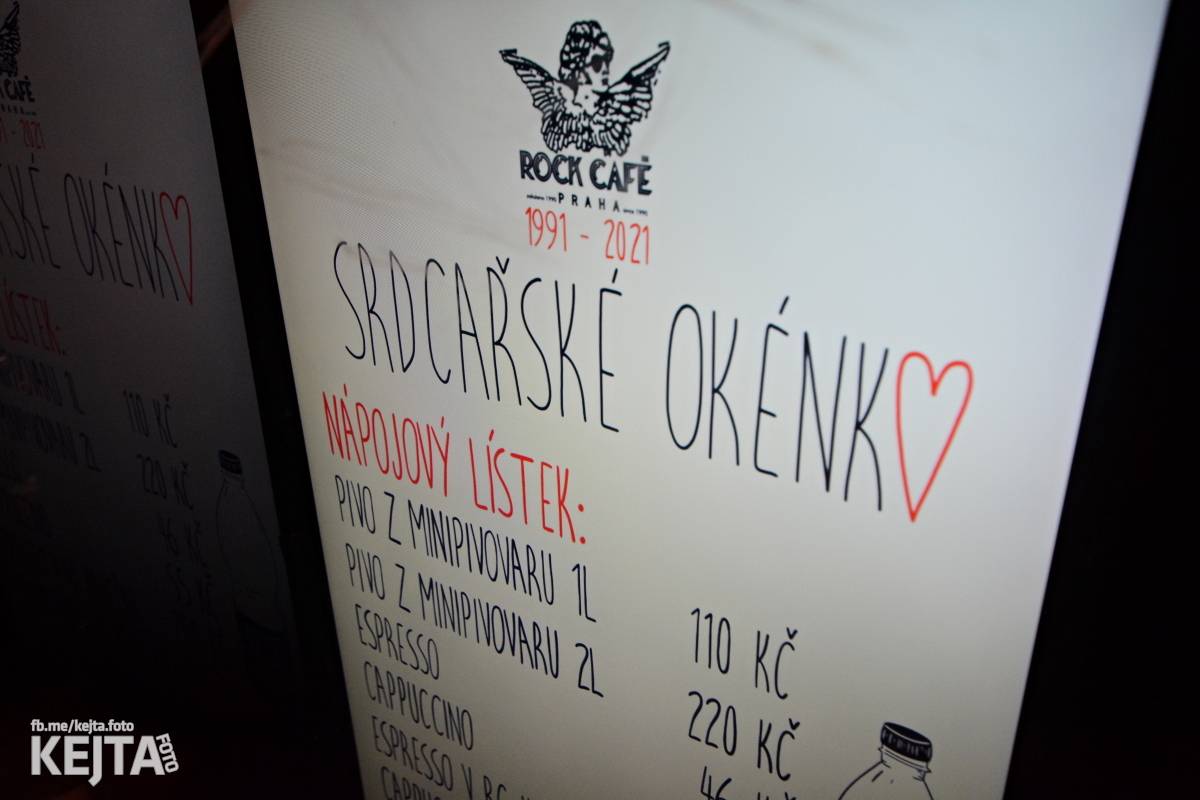 ROCK CAFÉ
PRAHA
1991 - 2021
SRDCAŘSKÉ OKÉNK
NÁPOJOVÝ LÍSTEK:
PIVO Z MINIPIVOVARU 1L 110 KČ
PIVO Z MINIPIVOVARU 2L 220 KČ
ESPRESSO 46
CAPPUCCINO
ESPRESSO V
CAFÉ
- 2021
OKÉNK
LÍSTEK:
110 KČ
220 KČ
46 KČ
fb.me/kejta.foto
KEJTA FOTO